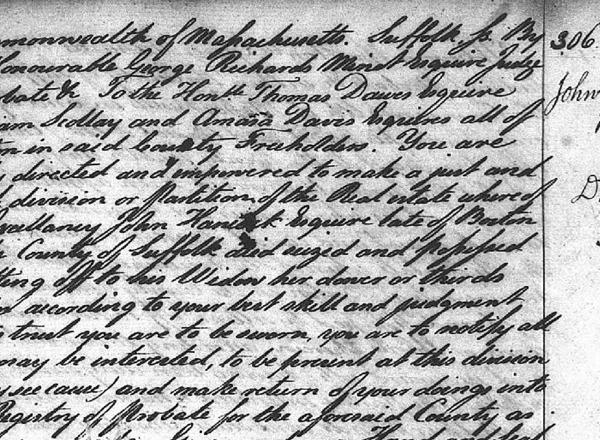 monwealth of Massachusetts. Suffolk ss. By
Honourable George Richards Minot Esquire Judge
obate &c To the Honble Thomas Dawes Esquire
iam Scollay and Amasa Davis Esquires all of
on in said County Freeholders. You are
y directed and impowered to make a just and
l division or Partition of the Real estate whereof
xcellancy John Hancock Esquire late of Boston
County of Suffolk died seized and possessed
tting off to his Widow her dower or thirds
according to your best skill and judgment
trust you are to be sworn, you are to notify all
may be interested, to be present at this division
y see cause) and make return of your doings into
Registry of Probate for the aforesaid County, as
306
John
D